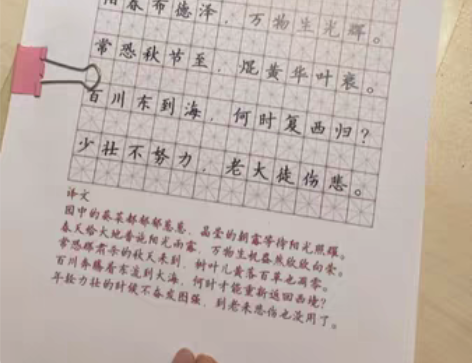 阳春布德泽，万物生光辉。
常恐秋节至，焜黄华叶衰。
百川东到海，何时复西归？
少壮不努力，老大徒伤悲。
译文
园中的葵菜郁郁葱葱，晶莹的朝露等待阳光照耀。
春天给大地普施阳光雨露，万物生机盎然欣欣向荣。
常恐那肃杀的秋天来到，树叶儿黄落百草也凋零。
百川奔腾着东流到大海，何时才能重新返回西境？
年轻力壮的时候不奋发图强，到老来悲伤也没用了。